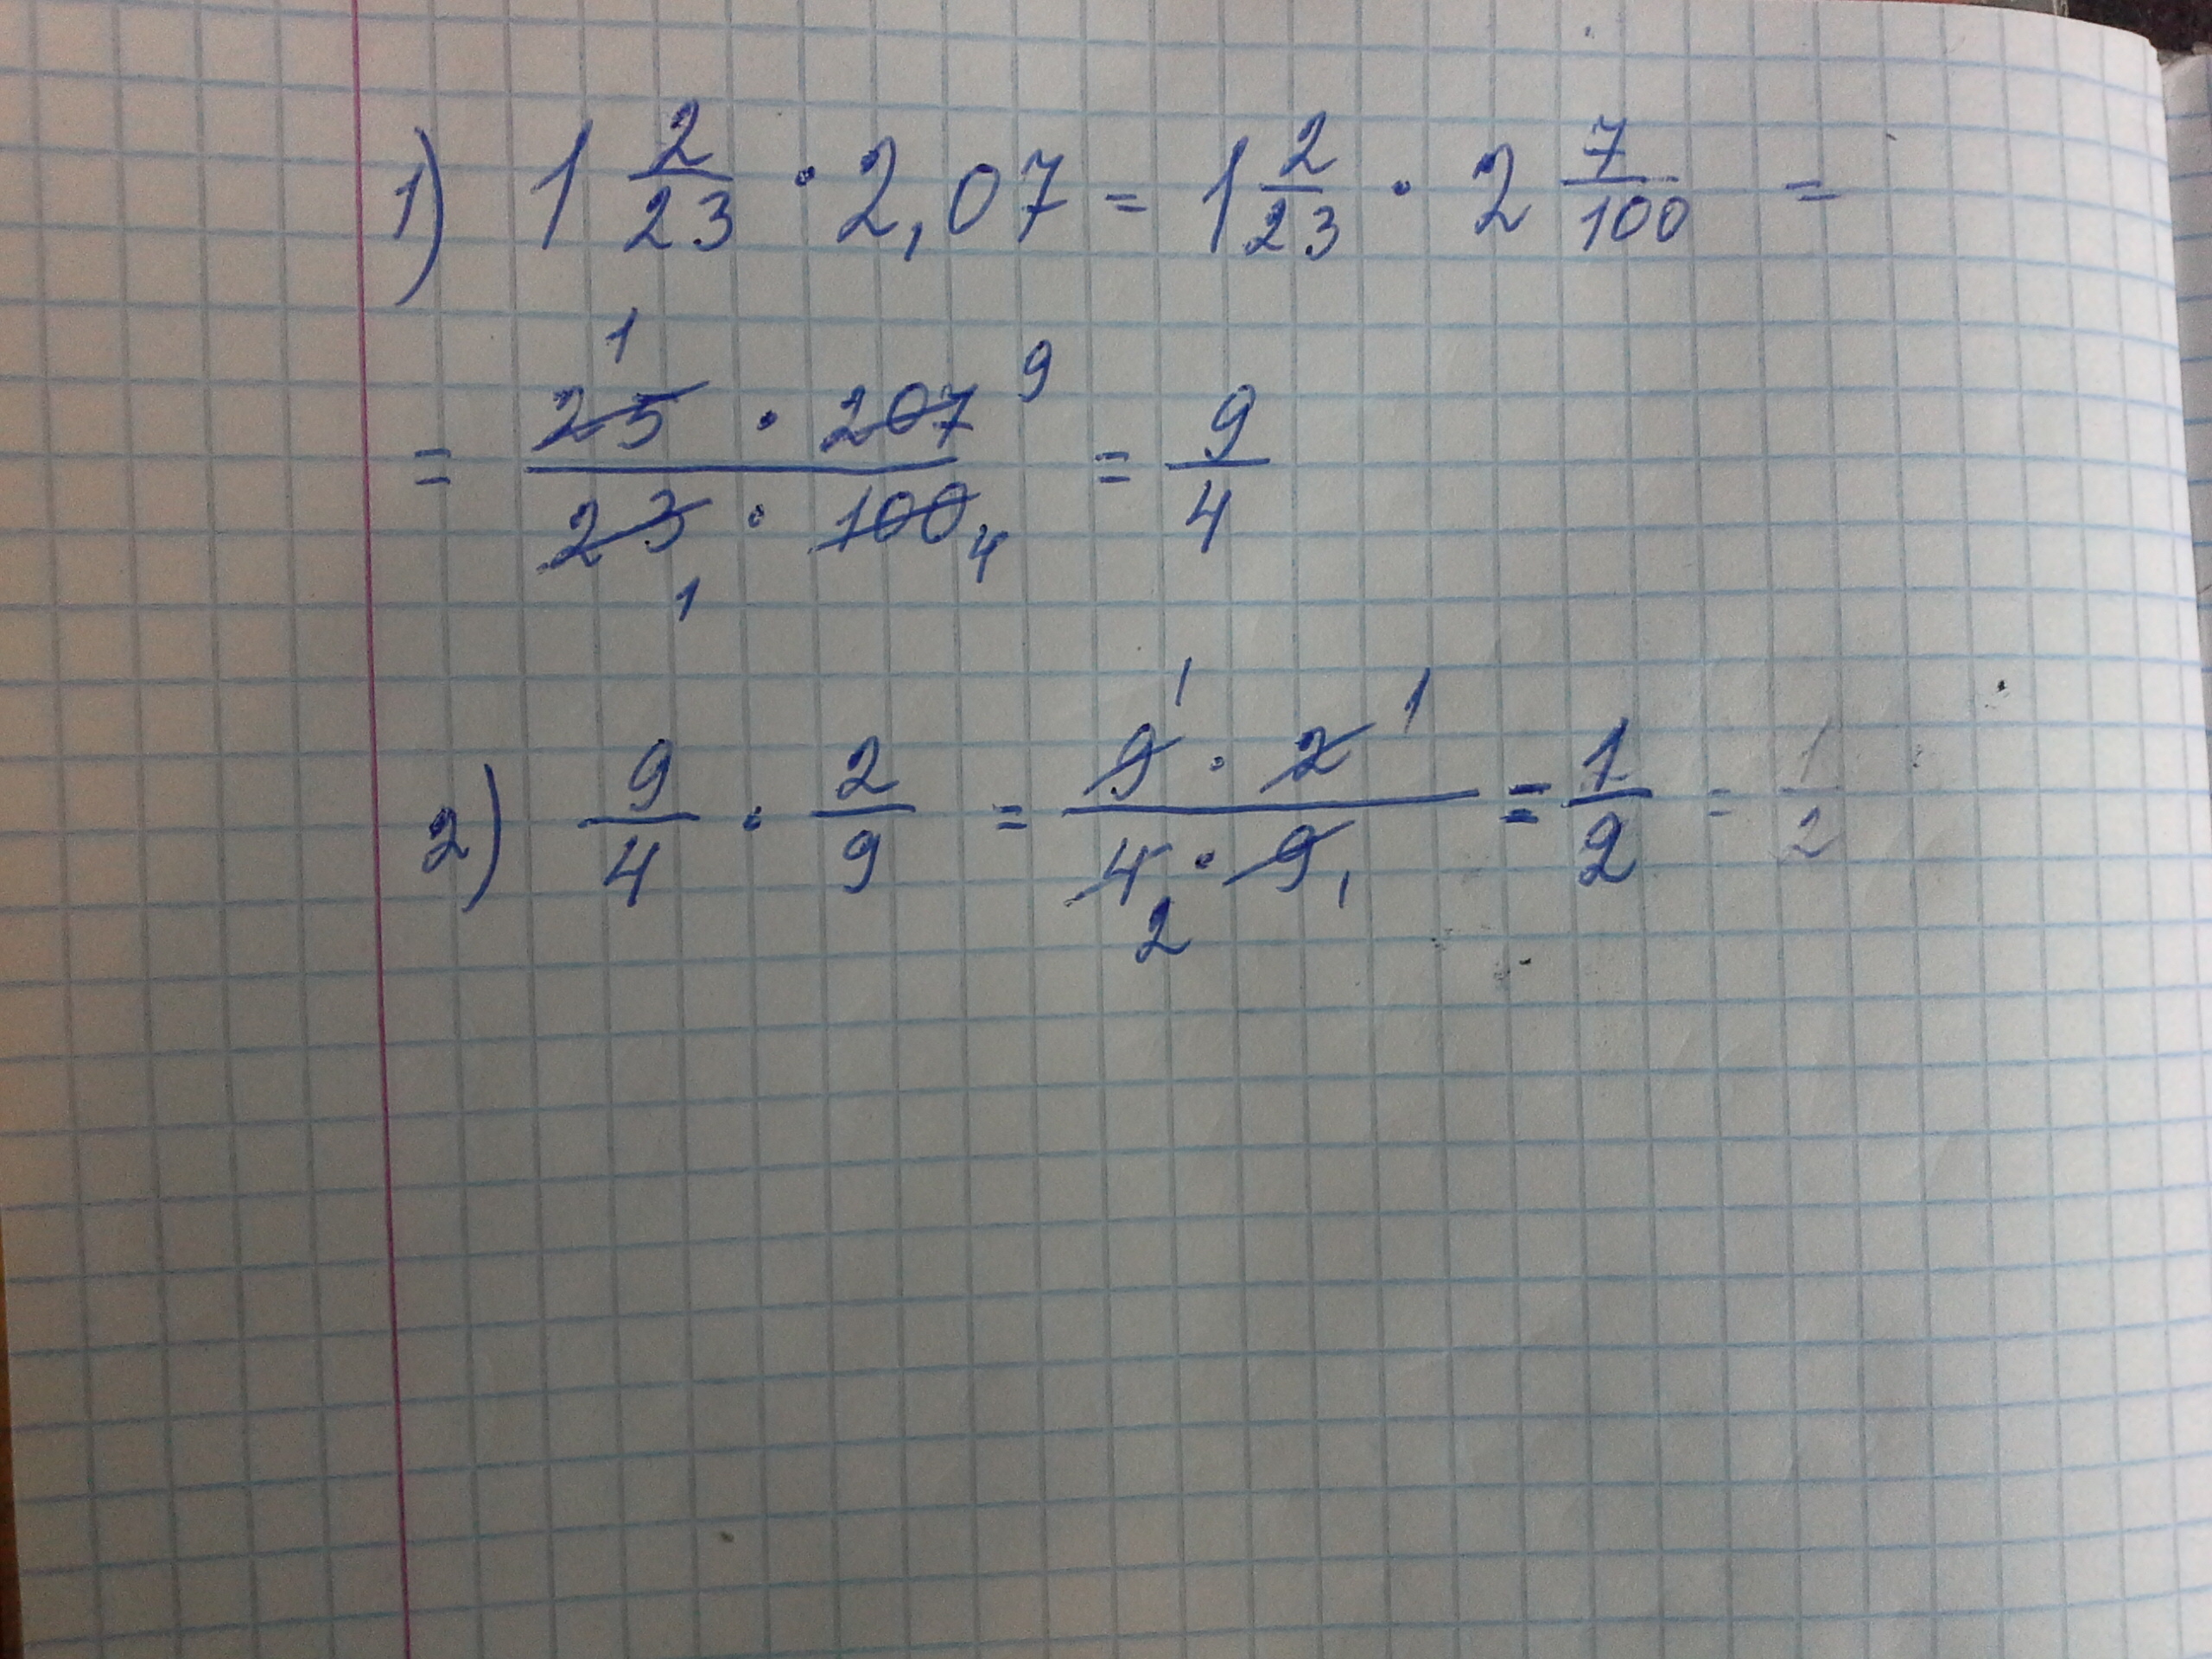 1) 1 2/23 · 2,07 = 1 2/23 · 2 7/100 =
= 25 1 · 207 9 / 23 1 · 100 4 = 9/4
2) 9/4 · 2/9 = 9 1 · 2 1 / 4 2 · 9 1 = 1/2 = 1/2